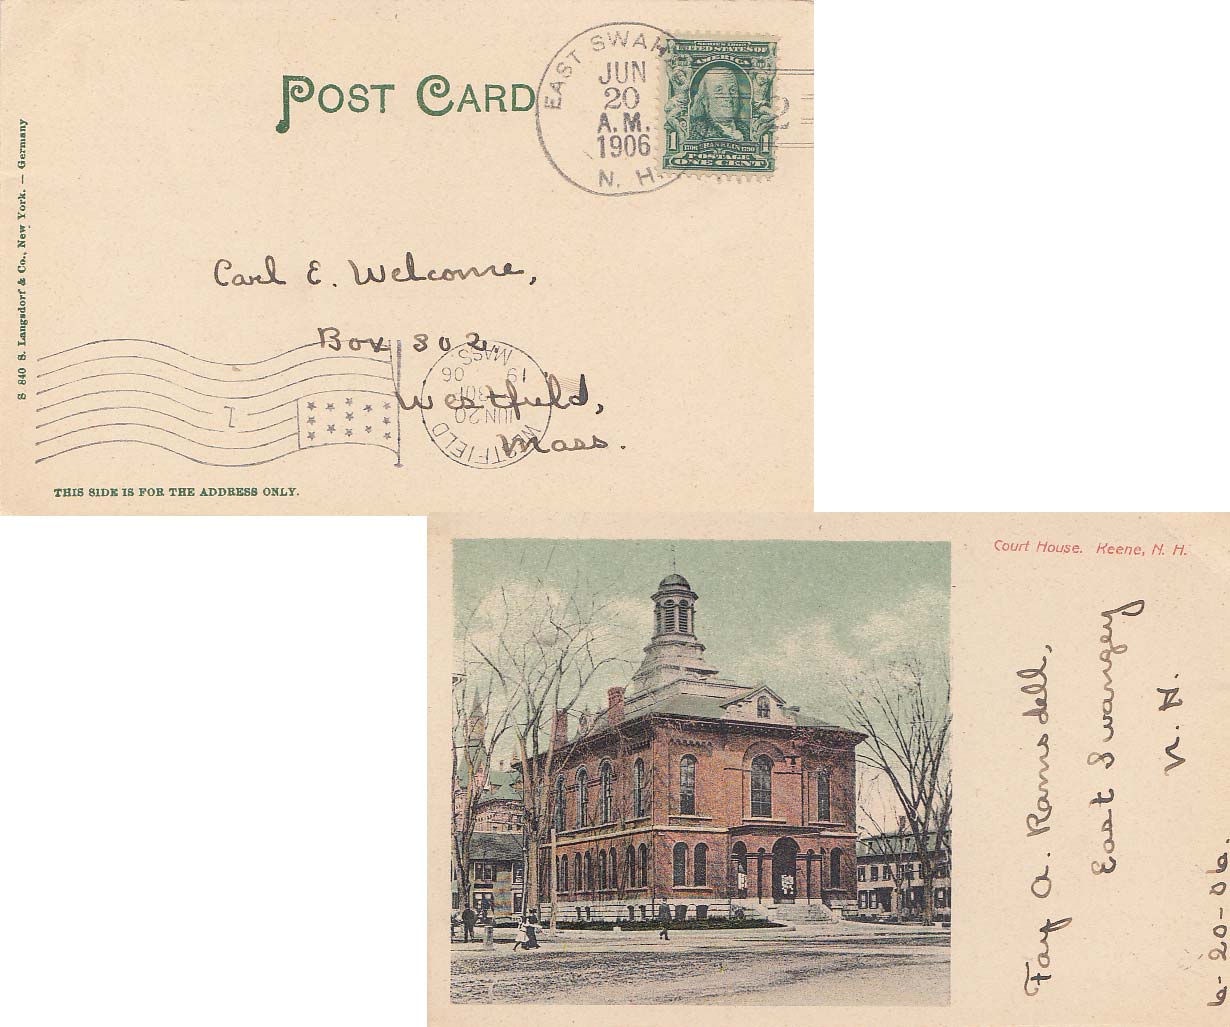 POST CARD
EAST SWAN
JUN
20
A.M.
1906
N. H.
SERIES 1902
UNITED STATES OF
AMERICA
1706 FRANKLIN 1790
1 1
POSTAGE
ONE CENT
2
S 840 S. Langsdorf & Co., New York. — Germany
Carl E. Welcome,
Box 302.
Westfield,
Mass.
WESTFIELD
JUN 20
1906
MASS.
1
THIS SIDE IS FOR THE ADDRESS ONLY.
Court House. Keene, N. H.
Fay A. Ramsdell,
East Swanzey
N. H.
6-20-06.